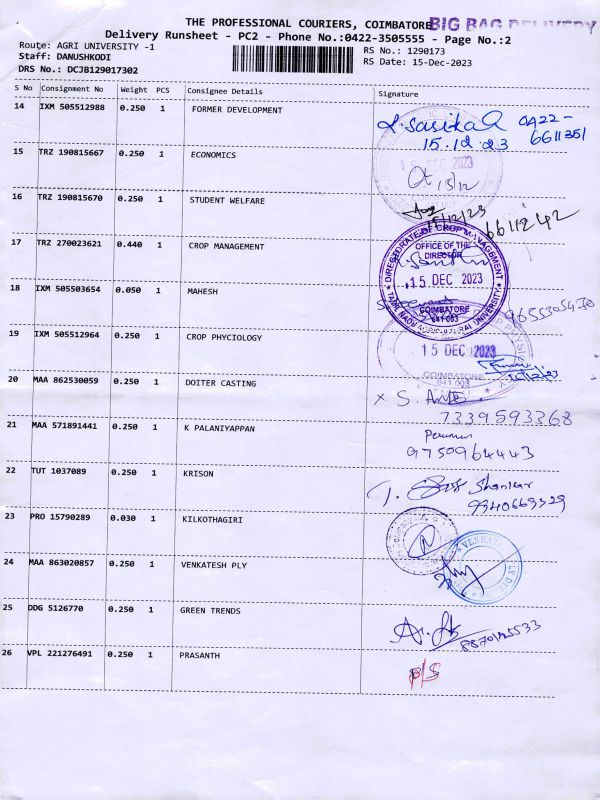 THE PROFESSIONAL COURIERS, COIMBATORE BIG BAG DELIVERY
Delivery Runsheet - PC2 - Phone No.:0422-3505555 - Page No.:2
Route: AGRI UNIVERSITY -1 RS No.: 1290173
Staff: DANUSHKODI RS Date: 15-Dec-2023
DRS No.: DCJB129017302
S No Consignment No Weight PCS Consignee Details Signature
14 IXM 505512988 0.250 1 FORMER DEVELOPMENT 0422-
6611351
15.12.23
15 TRZ 190815667 0.250 1 ECONOMICS DEC 2023
15/12
16 TRZ 190815670 0.250 1 STUDENT WELFARE 15/12/23 6611242
17 TRZ 270023621 0.440 1 CROP MANAGEMENT
DIRECTORATE OF CROP MANAGEMENT
OFFICE OF THE
DIRECTOR
15 DEC 2023
COIMBATORE
641 003
TAMIL NADU AGRICULTURAL UNIVERSITY
18 IXM 505503654 0.050 1 MAHESH 9655305470
19 IXM 505512964 0.250 1 CROP PHYCIOLOGY 15 DEC 2023
COIMBATORE
641 003
20 MAA 862530059 0.250 1 DOITER CASTING x S.
7339593368
21 MAA 571891441 0.250 1 K PALANIYAPPAN
9750964443
22 TUT 1037089 0.250 1 KRISON T. Shankar
9940669329
23 PRO 15790289 0.030 1 KILKOTHAGIRI
24 MAA 863020857 0.250 1 VENKATESH PLY VENKAT
25 DDG 5126770 0.250 1 GREEN TRENDS
26 VPL 221276491 0.250 1 PRASANTH